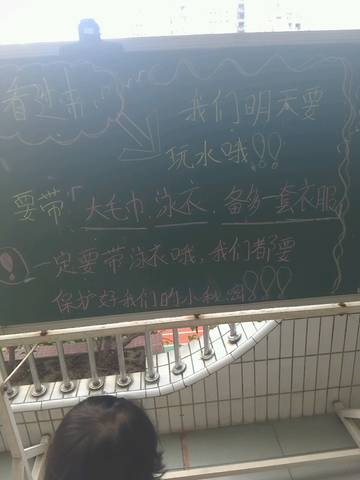 看过来 我们明天要
玩水哦!!
要带"大毛巾、泳衣、备多一套衣服
! 一定要带泳衣哦,我们都要
保护好我们的小秘密!!!